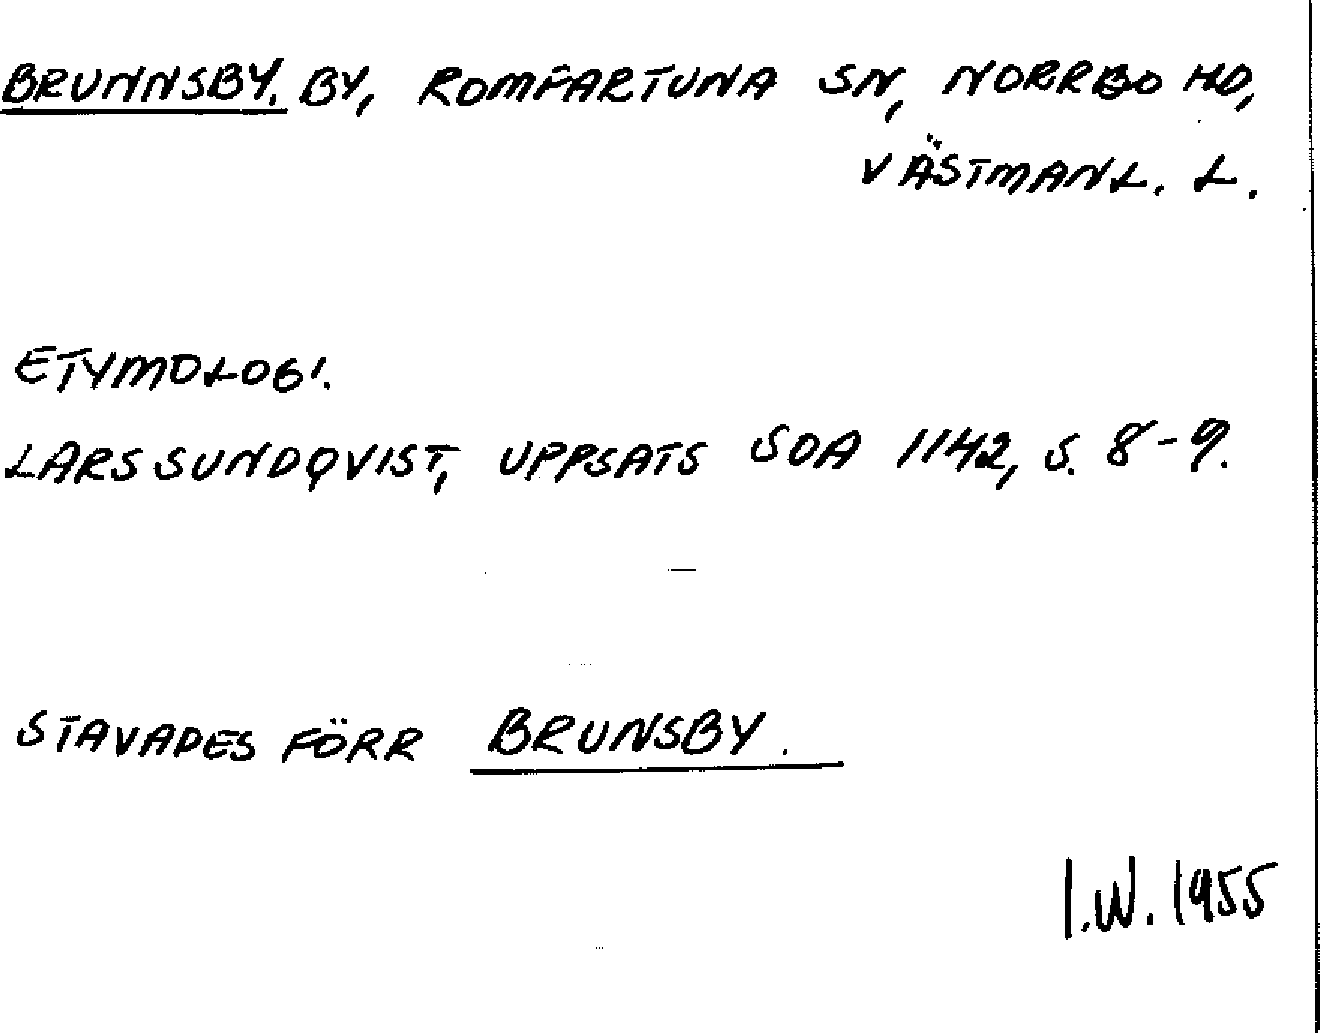 BRUNNSBY. BY, ROMFARTUNA SN, NORRBO HD,
VÄSTMANL. L.
ETYMOLOGI.
LARS SUNDQVIST, UPPSATS SOA 1142, S. 8-9.
STAVADES FÖRR BRUNSBY.
I.W. 1955